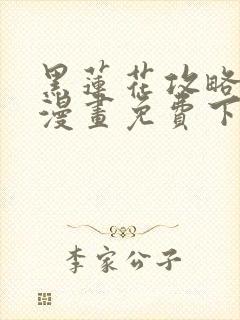 黑蓮花攻略
漫畫免費下
李家公子